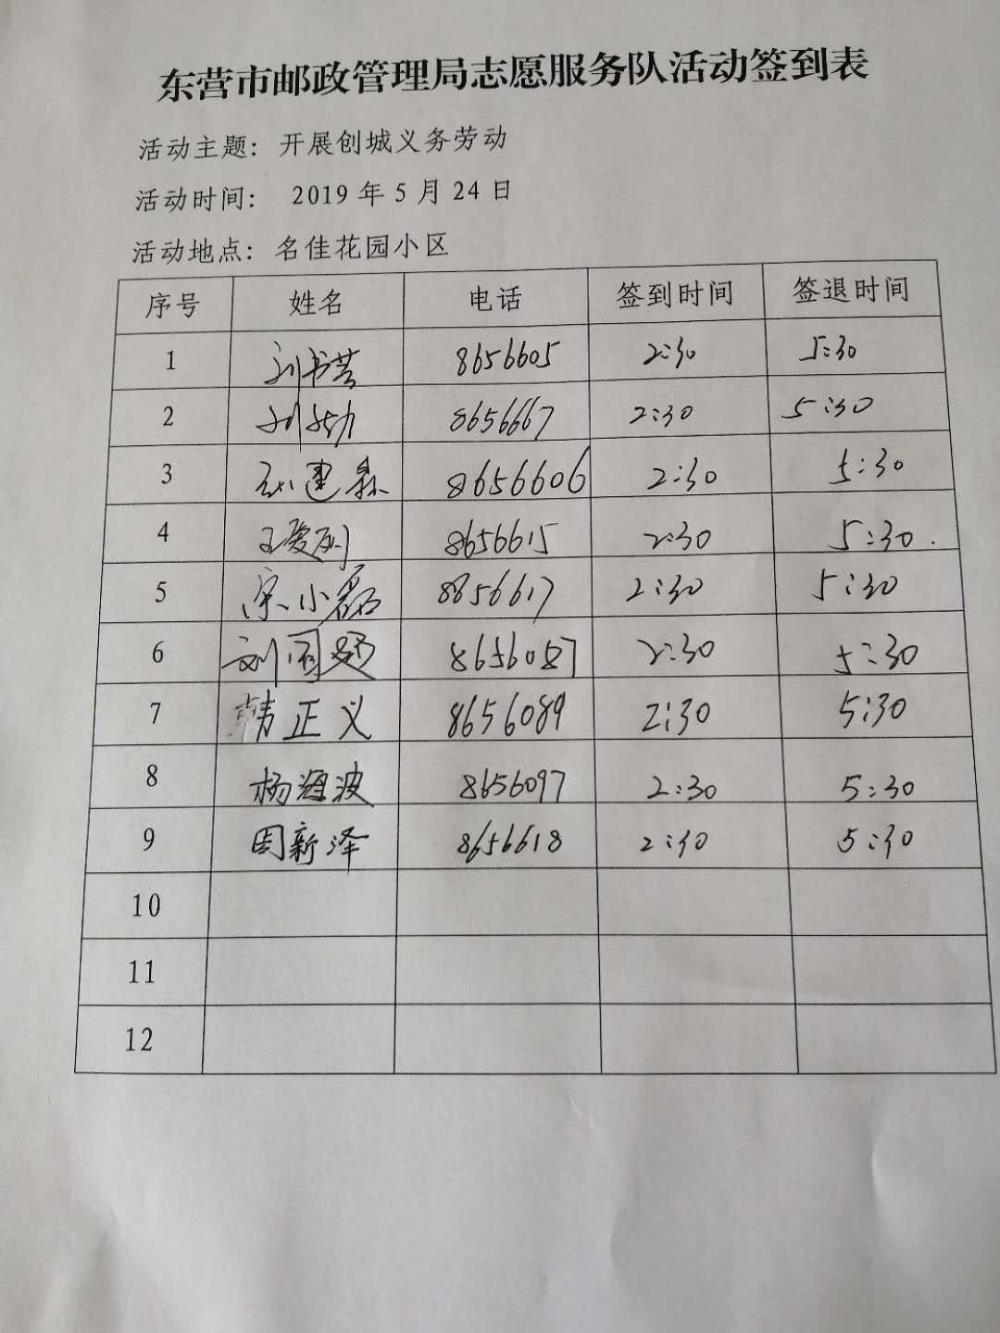 东营市邮政管理局志愿服务队活动签到表
活动主题: 开展创城义务劳动
活动时间: 2019年5月24日
活动地点: 名佳花园小区
序号 姓名 电话 签到时间 签退时间
1 刘书芸 8656605 2:30 5:30
2 8656667 2:30 5:30
3 建森 8656606 2:30 5:30
4 王爱 8656615 2:30 5:30
5 宋小磊 8856617 2:30 5:30
6 刘国 8656087 2:30 5:30
7 韩正义 8656089 2:30 5:30
8 杨海波 8656097 2:30 5:30
9 周新泽 8656618 2:30 5:30
10
11
12